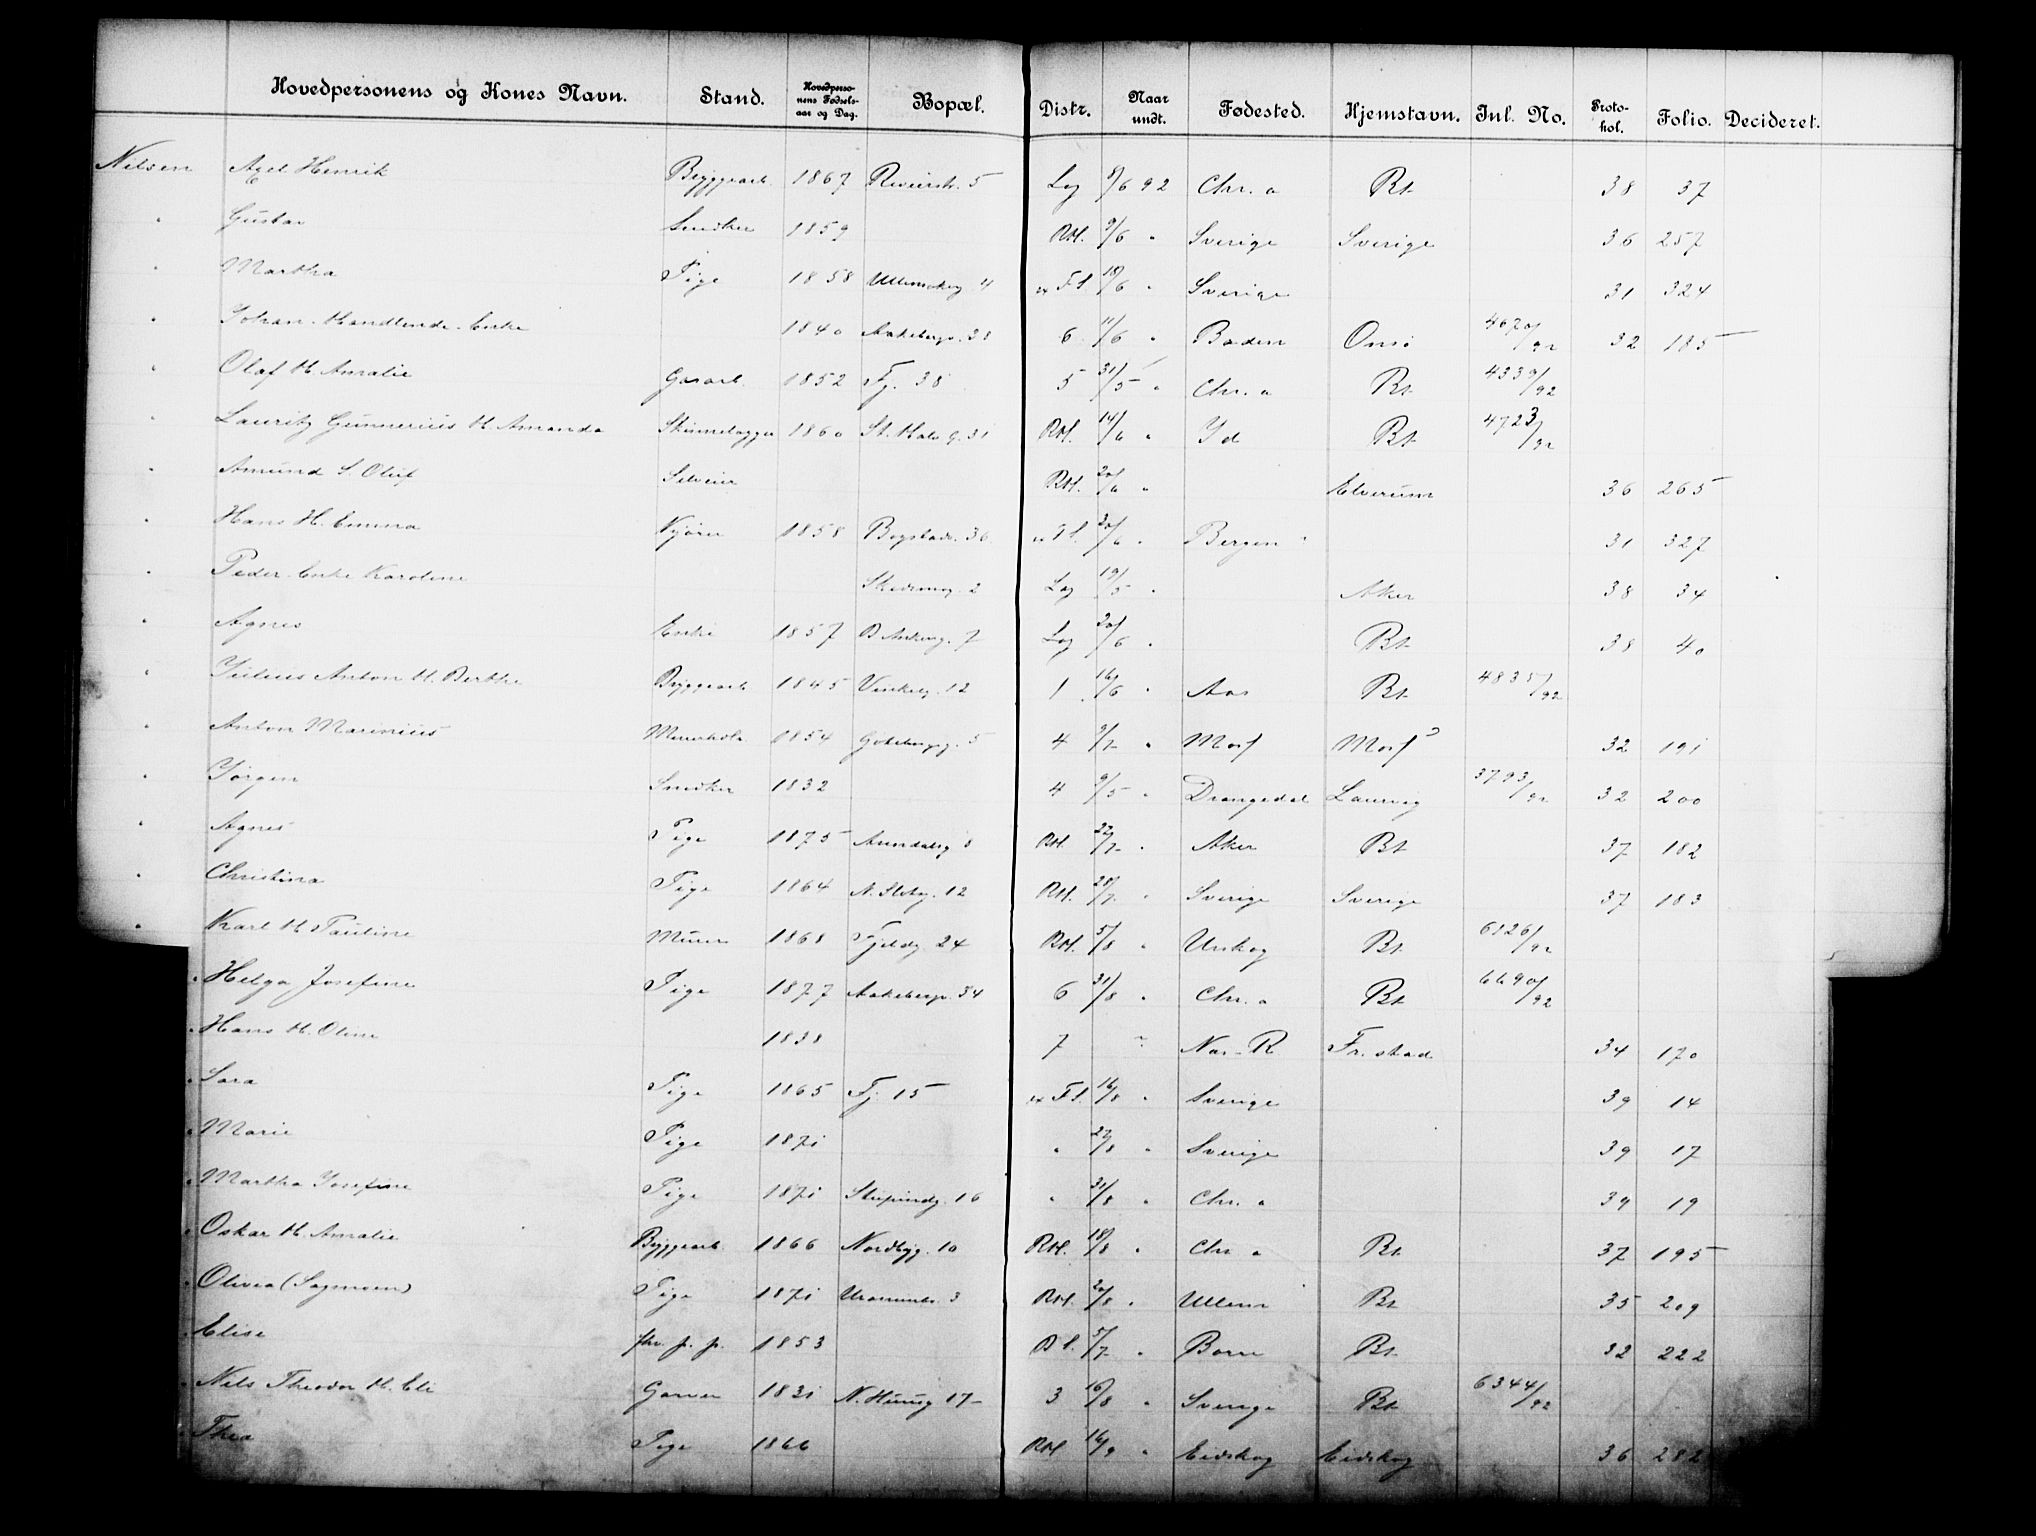 Hovedpersonens og Kones Navn. Stand. Hovedpersonens Fødselsaar og Dag. Bopæl. Distr. Naar undt. Fødested. Hjemstavn. Inl. No. Protokol. Folio. Decideret.
Nilsen Axel Henrik Byggearb. 1867 Reverstr. 5 Lag 8/6 92 Chr.a Bt 38 37
" Gustav Snedker 1859 RH. 9/6 " Sverige Sverige 36 257
" Martha Pige 1858 Ullensakerg 4 Fl 18/6 " Sverige 31 324
" Johan Handlende Enke 1840 Aakebergv. 28 6 11/6 " Baden Onsø 4670/92 32 185
" Olaf H. Amalie Gasarb. 1852 Fj. 38 5 31/5 " Chr.a Bt 4339/92
" Lauritz Gunnerius H. Amanda 1860 St. Halv. g. 31 RH. 14/6 " Id Bt 4723/92
" Amund S. Oluf RH. 20/6 " Elverum 36 265
" Hans H. Emma Kjører 1858 Bogstadv. 36 20/6 " Bergen 31 327
" Peder Enke Karoline 2 Lag 19/5 " Aker 38 34
" Agnes Enke 1857 7 Lag 20/6 " Bt 38 40
" Julius Anton H. Berthe Byggearb 1845 Vinkelg. 12 1 16/6 " Aas Bt 4835/92
" Anton Marinius 1854 Gøteborgg. 5 4 9/7 " Mos Mos 32 191
" Jørgen Snedker 1832 4 9/5 " Drangedal Laurvig 3793/92 32 200
" Agnes Pige 1875 Arendalsg 3 RH. 22/7 " Aker Bt 37 182
" Christina Pige 1864 N. Slotsg. 12 RH. 28/7 " Sverige Sverige 37 183
" Karl H. Pauline Murer 1868 Fjeldg. 24 RH. 5/8 " Urskog Bt 6126/92
" Helga Josefine Pige 1877 Aakebergv. 34 6 31/8 " Chr.a Bt 6690/92
" Hans H. Oline 1838 7 " Nas-R Fr.stad 34 170
" Sara Pige 1865 Fj. 15 Fl. 16/8 " Sverige 39 14
" Marie Pige 1871 " 22/8 " Sverige 39 17
" Martha Josefine Pige 1871 Stupindg. 16 " 31/8 " Chr.a 39 19
" Oskar H. Amalie Byggearb. 1866 Nordbyg. 10 RH. 18/8 " Chr.a Bt 37 195
" Olivea (Sagmoen) Pige 1871 3 RH. 20/8 " Ullensr Bt 35 209
" Elise fhv. p. p. 1853 5/7 " Borre Bt 32 222
" Nils Theodor H. Eli Garver 1831 N. Hunsg 17 3 16/8 " Sverige Bt 6344/92
" Thea Pige 1866 RH 16/9 " Eidskog Eidskog 36 282